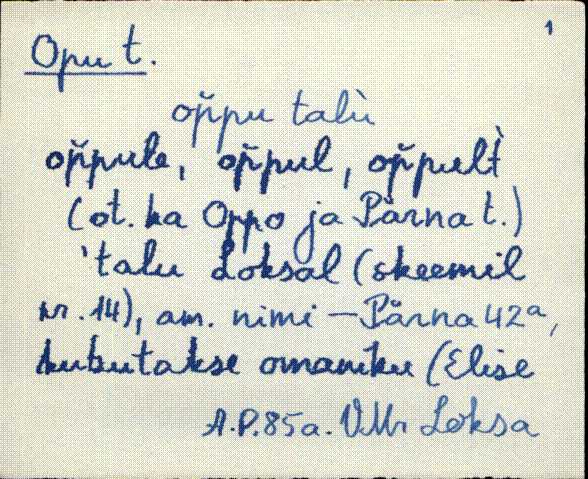 1
Opu t.
op̆pu talù
op̆pule, op̆pul, op̆pult̀
(ot. ka Oppo ja Pärna t.)
'talu Loksal (skeemil
nr. 14), am. nimi – Pärna 42a,
kubutakse omaniku (Elise
A.P.85a. VMr Loksa